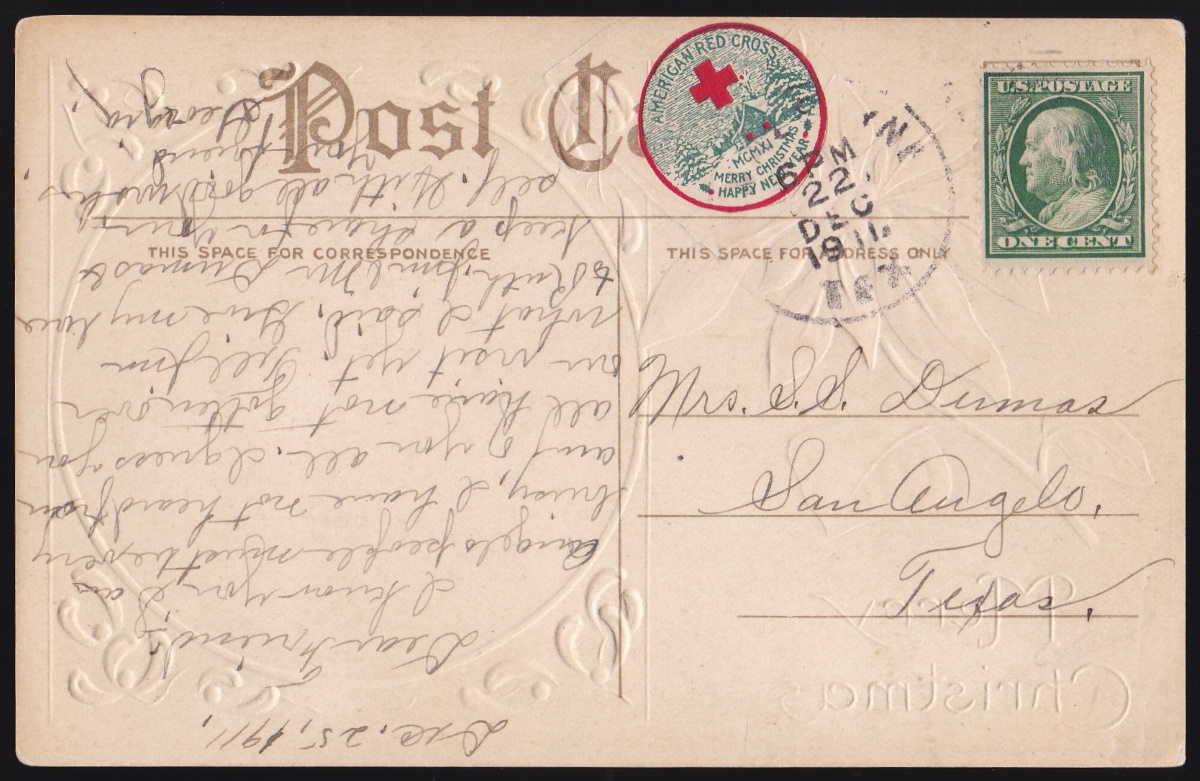 Post Ca
AMERICAN RED CROSS
MCMXI
MERRY CHRISTMAS
HAPPY NEW YEAR
6
M
22
DEC
1911
TEX
U.S. POSTAGE
ONE CENT
THIS SPACE FOR CORRESPONDENCE
THIS SPACE FOR ADDRESS ONLY
Mrs. S.S. Dumas
San Angelo,
Texas.
Merry
Christmas
Dec. 25, 1911,
Dear Friend;
I know you & as
Angelo people must be very
busy, I have not heard from
any of you all. I guess you
all have not gotten over
our visit yet. Tell Jim
what I said. Give my love
to Ruth, Jim & Mr Dumas &
keep a share for your
self. With all good wishes
Your friend
Georgia